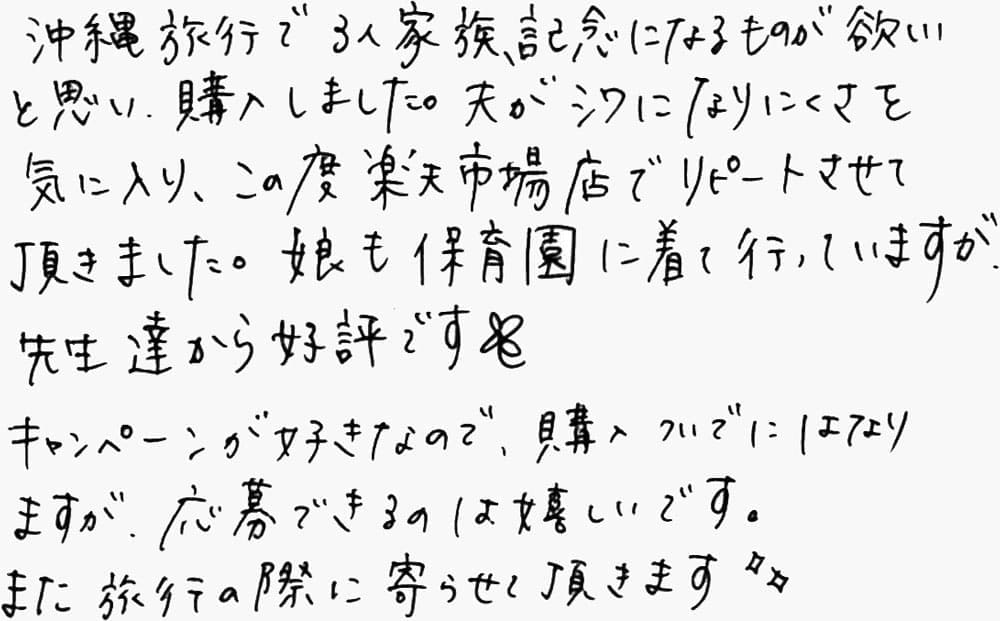 沖縄旅行で3人家族、記念になるものが欲しい
と思い、購入しました。夫がシワになりにくさを
気に入り、この度楽天市場店でリピートさせて
頂きました。娘も保育園に着て行っていますが、
先生達から好評です
キャンペーンが好きなので、購入ついでにはなり
ますが、応募できるのは嬉しいです。
また旅行の際に寄らせて頂きます